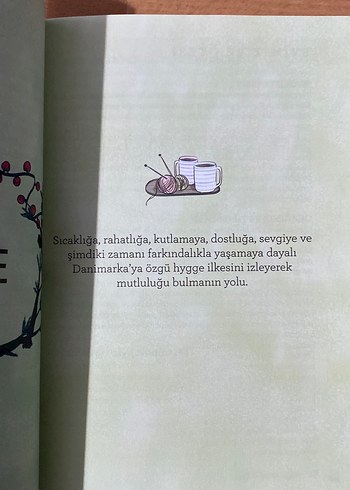 Sıcaklığa, rahatlığa, kutlamaya, dostluğa, sevgiye ve
şimdiki zamanı farkındalıkla yaşamaya dayalı
Danimarka'ya özgü hygge ilkesini izleyerek
mutluluğu bulmanın yolu.